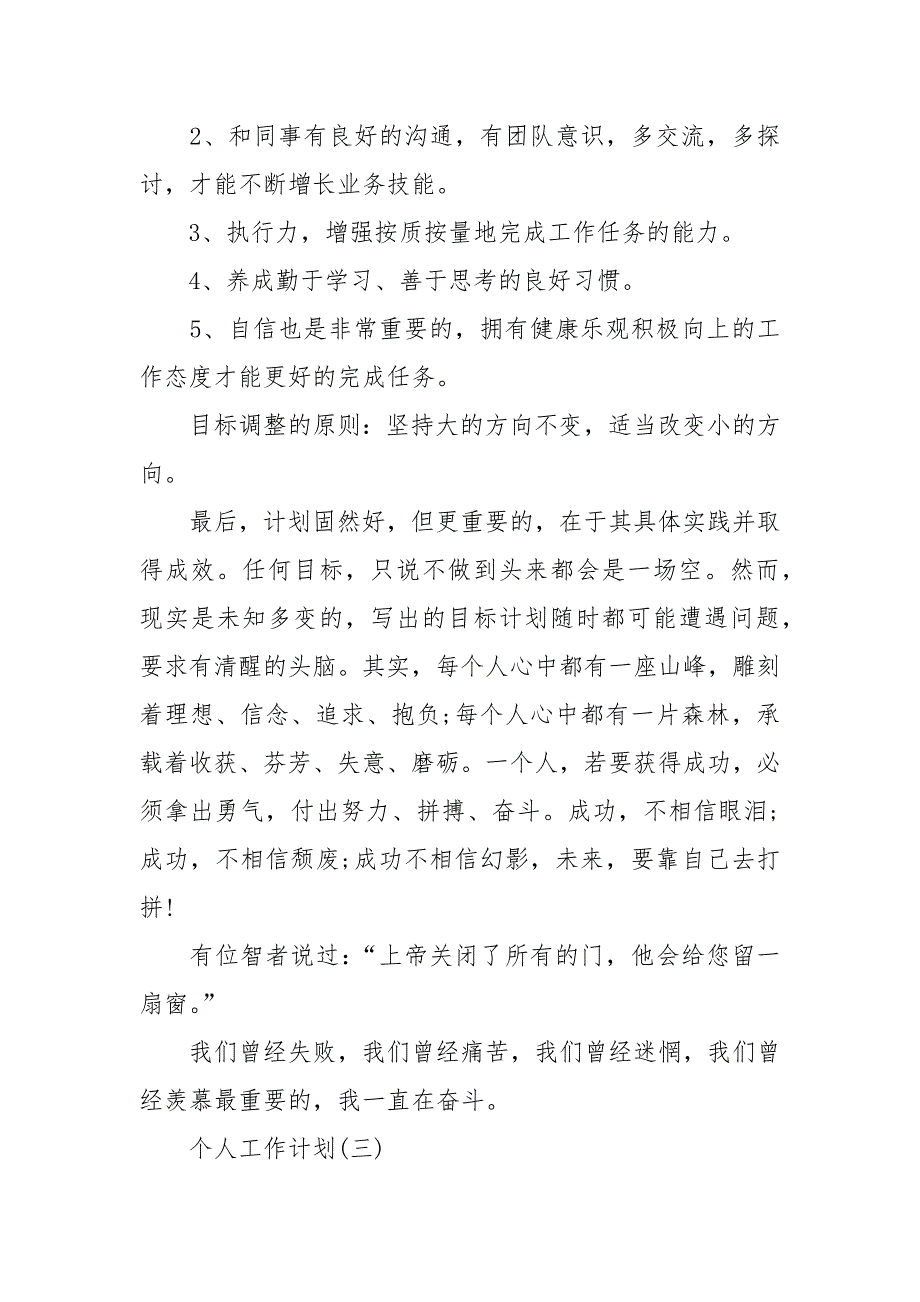 2、和同事有良好的沟通，有团队意识，多交流，多探
讨，才能不断增长业务技能。
3、执行力，增强按质按量地完成工作任务的能力。
4、养成勤于学习、善于思考的良好习惯。
5、自信也是非常重要的，拥有健康乐观积极向上的工
作态度才能更好的完成任务。
目标调整的原则：坚持大的方向不变，适当改变小的方
向。
最后，计划固然好，但更重要的，在于其具体实践并取
得成效。任何目标，只说不做到头来都会是一场空。然而，
现实是未知多变的，写出的目标计划随时都可能遭遇问题，
要求有清醒的头脑。其实，每个人心中都有一座山峰，雕刻
着理想、信念、追求、抱负;每个人心中都有一片森林，承
载着收获、芬芳、失意、磨砺。一个人，若要获得成功，必
须拿出勇气，付出努力、拼搏、奋斗。成功，不相信眼泪;
成功，不相信颓废;成功不相信幻影，未来，要靠自己去打
拼!
有位智者说过：“上帝关闭了所有的门，他会给您留一
扇窗。”
我们曾经失败，我们曾经痛苦，我们曾经迷惘，我们曾
经羡慕最重要的，我一直在奋斗。
个人工作计划(三)